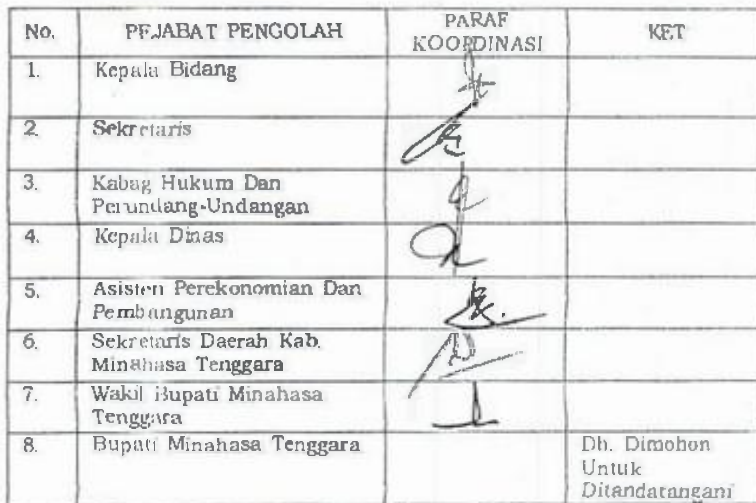 No. PEJABAT PENGOLAH PARAF KOORDINASI KET
1. Kepala Bidang
2. Sekretaris
3. Kabag Hukum Dan
Perundang-Undangan
4. Kepala Dinas
5. Asisten Perekonomian Dan
Pembangunan
6. Sekretaris Daerah Kab.
Minahasa Tenggara
7. Wakil Bupati Minahasa
Tenggara
8. Bupati Minahasa Tenggara Dh. Dimohon
Untuk
Ditandatangani